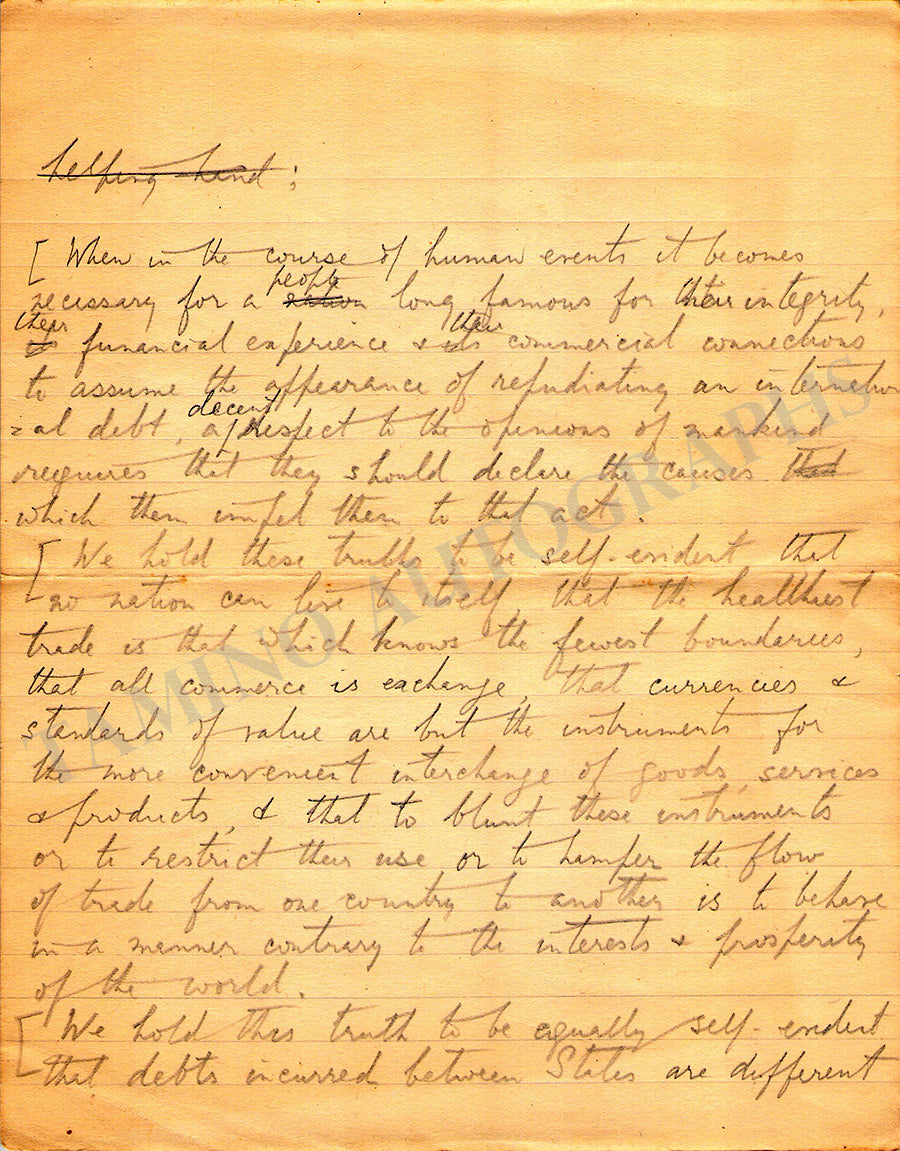 helping hand;
[ When in the course of human events it becomes
people
necessary for a nation long famous for their integrity,
their their
its financial experience & its commercial connections
to assume the appearance of repudiating an internation
=al debt, a decent respect to the opinions of mankind
requires that they should declare the causes that
which them impel them to that act.
[ We hold these truths to be self-evident that
no nation can live to itself, that the healthiest
trade is that which knows the fewest boundaries,
that all commerce is exchange, that currencies &
standards of value are but the instruments for
the more convenient interchange of goods, services
& products, & that to blunt these instruments
or to restrict their use or to hamper the flow
of trade from one country to another is to behave
in a manner contrary to the interests & prosperity
of the world.
[ We hold this truth to be equally self-evident
that debts incurred between States are different
TAMINO AUTOGRAPHS